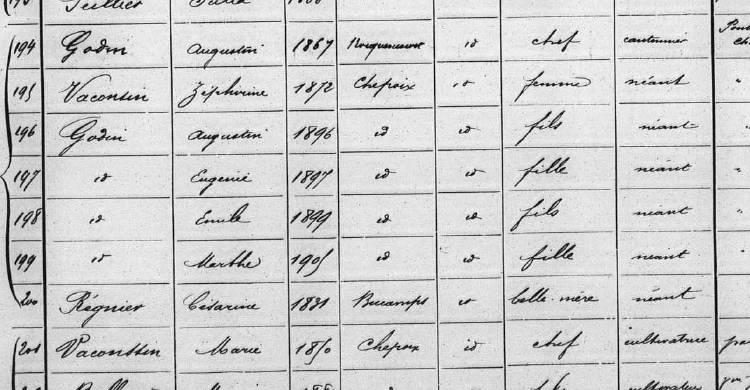 194 Godin Augustin 1867 Rocquencourt id chef cantonnier
195 Vaconsin Zéphirine 1872 Chepoix id femme néant "
196 Godin Augustin 1896 id id fils néant "
197 id Eugenie 1897 id id fille néant "
198 id Emile 1899 id id fils néant "
199 id Marthe 1905 id id fille néant "
200 Régnier Césarine 1831 Bucamps id belle-mère néant "
201 Vaconssin Marie 1850 Chepoix id chef cultivatrice